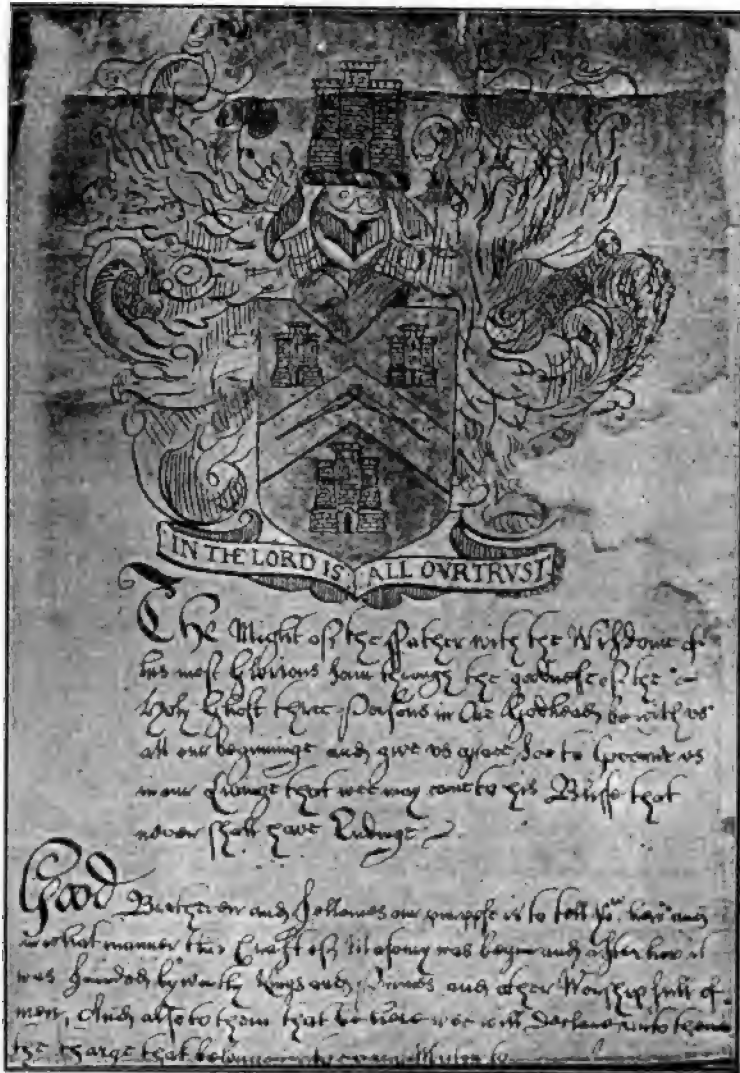 IN THE LORD IS ALL OVR TRVST
The Might of the Father with the Wisdome of
his most Glorious through the goodnesse of the
Holy Ghost three Persons in One Godhead be with vs
att our beginninge and give vs grace soe to vs
in our that wee may come to his Blisse that
never shall have Endinge
Good Bretheren and Fellowes our purpose is to tell you how and
in what manner this Craft of Masonry was begun and after how it
was founded by worthy Kings and Princes and other Worshipfull
men, And also to them that be here wee will Declare unto them
the Charge that to every